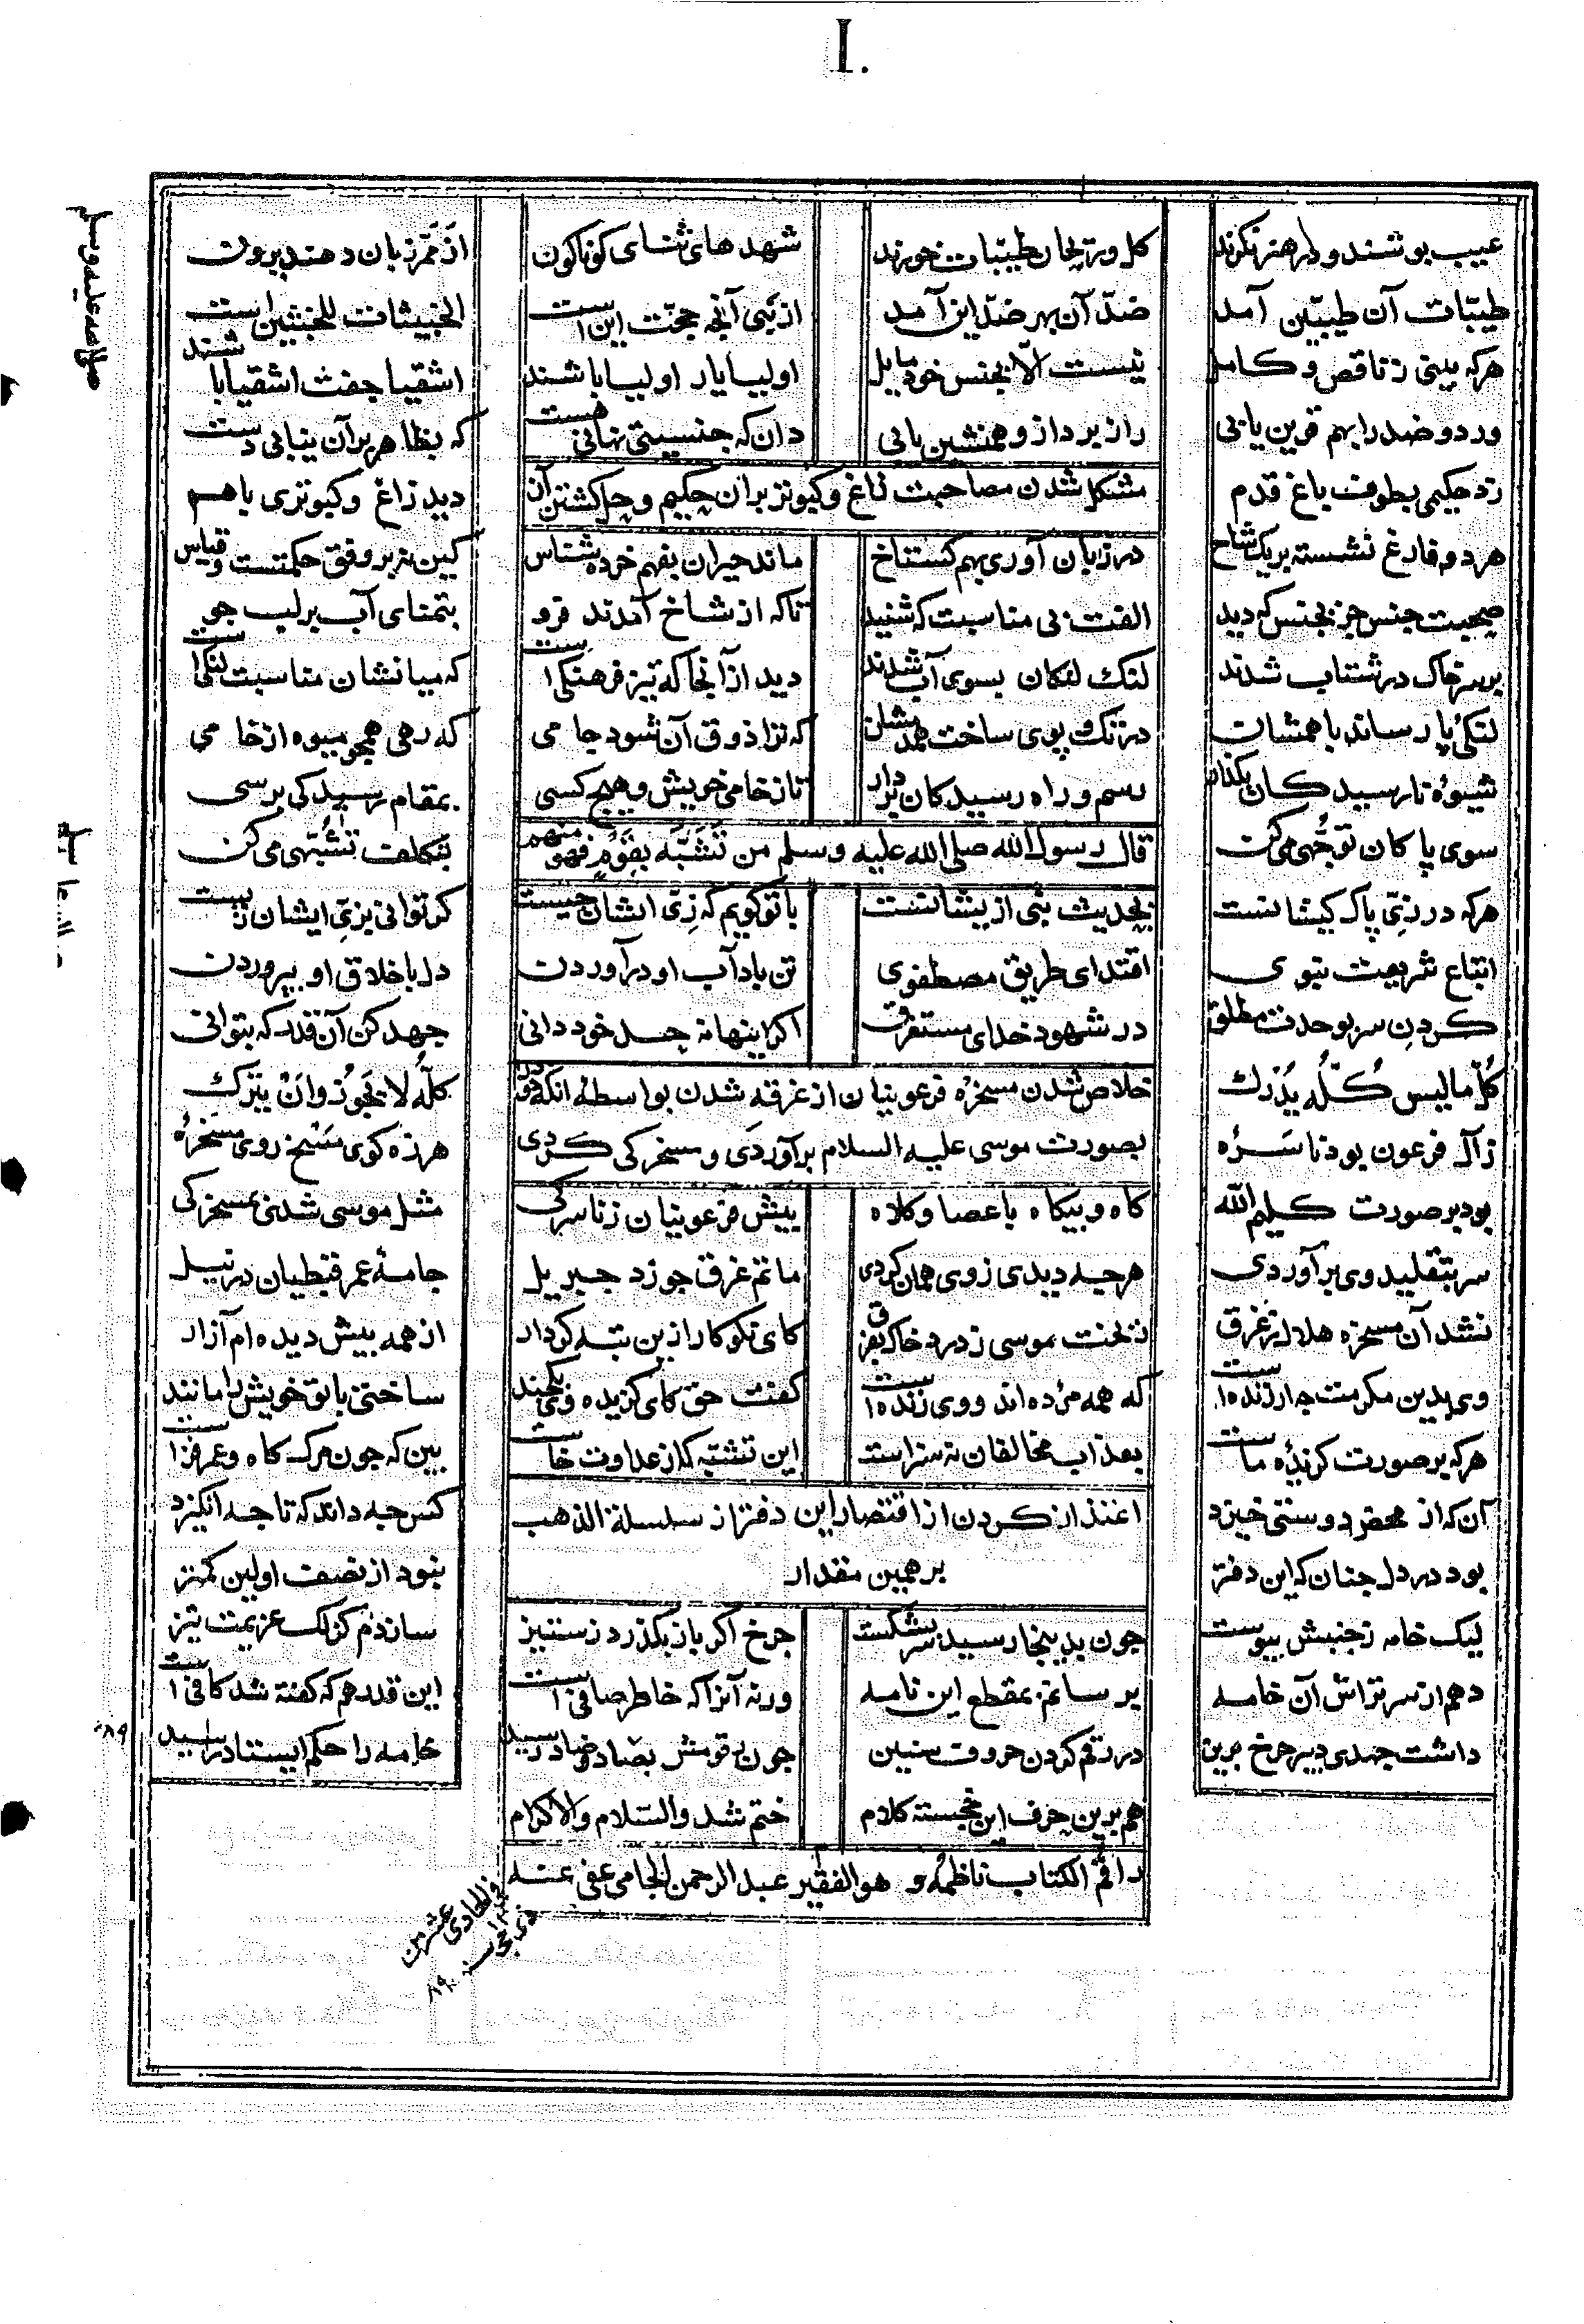 I.
عیب پوشند و در هنر نکرند کل و ریحان طیبات خورند شهد های ثنای کوناکون از ممر زبان دهند برون
طیبات آن طیبین آمد ضد آن بهر ضد این آمد از نبی آنچه حجت این است الخبیثات للخبیثین است
هرکه بینی ز ناقص و کامل نیست الا بجنس خود مایل اولیا یار اولیا باشند اشقیا جفت اشقیا باشند
ور دو ضد را بهم قرین یابی راز پرداز و همنشین یابی دان که جنسیتی نهانی هست که بظاهر بر آن نیابی دست
مشکل شدن مصاحبت زاغ و کبوتر بران حکیم و حل کشتن آن
زد حکیمی بطوف باغ قدم دید زاغ و کبوتری باهم
هر دو فارغ نشسته بر یک شاخ در زبان آوری بهم کستاخ ماند حیران بفهم خرده شناس کین نه بر وفق حکمتست و قیاس
صحبت جنس جز بجنس که دید الفت بی مناسبت که شنید ناکه از شاخ آمدند فرو بتمنای آب بر لب جو
بر سر خاک در شتاب شدند لنک لنکان بسوی آب شدند دید از آنجا که تیز فرهنکی است که میانشان مناسبت لنکی است
لنکی پا رساند با همشان در تک و پوی ساخت همدمشان که ترا ذوق آن شود جامی که رهی همچو میوه از خامی
شیوهٔ نارسیدکان بکذار رسم و راه رسیدکان بردار تا ز خامی خویش و هیچ کسی بمقام رسیدکی برسی
قال رسول الله صلی الله علیه وسلم من تشبه بقوم فهو منهم
سوی پاکان توجهی می کن بتکلف تشبهی می کن
هرکه در زی پاک کیشانست بحدیث نبی از یشانست با تو کویم که زی ایشان چیست کر توانی بزی ایشان زیست
اتباع شریعت نبوی اقتدای طریق مصطفوی تن بآداب او درآوردن دل باخلاق او بپروردن
کردن سر بوحدت مطلق در شهود خدای مستغرق اکر اینها نه حد خود دانی جهد کن آن قدر که بتوانی
کل ما لیس کله یدرک کله لا یجوز وان یترک
خلاص شدن مسخرهٔ فرعونیان از غرقه شدن بواسطهٔ انکه خود را
بصورت موسی علیه السلام برآوردی و مسخرکی کردی
ز آل فرعون بود ناسره هرزه کوی مسخ روی مسخره
بود بر صورت کلیم الله کاه و بیکاه با عصا و کلاه پیش فرعونیان ز ناسرکی مثل موسی شدنی بمسخرکی
سر بتقلید وی برآوردی هرچه دیدی ز وی همان کردی ماتم غرق چو زد جبریل جامهٔ عمر قبطیان در نیل
نشد آن مسخره هلاک ز غرق ریخت موسی ز درد خاک بفرق کای نکوکار ازین تبه کردار از همه بیش دیده ام آزار
وی بدین مکرمت چه ارزنده است که همه مرده اند و وی زنده است کفت حق کای کزیده فرزند ساختی با تو خویش را مانند
هرکه بر صورت کزیدهٔ ماست بعذاب مخالفان نه سزاست این تشبه که از عداوت خاست بین که چون مرک کاه و عمر فزاست
آن که از محض دوستی خیزد کس چه داند که تا چه انکیزد
اعتذار کردن از اقتصار این دفتر از سلسلة الذهب
بر همین مقدار
بود در دل چنان که این دفتر نبود از نصف اولین کمتر
لیک خامه ز جنبش پیوست چون بدینجا رسید سر بشکست چرخ اکر باز بکذرد ز ستیز سازدم کزلک عزیمت تیز
دهم از سر تراش آن خامه برسانم بمقطع این نامه ورنه آنرا که خاطر صافی است این قدر هم که کفته شد کافی است
داشت جهدی دبیر چرخ برین در رقم کردن حروف سنین چون برقومش بضاد و صاد رسید خامه را حکم ایستاد رسید
هم برین حرف این خجسته کلام ختم شد والسلام والاکرام
راقم الکتاب ناظمه و هو الفقیر عبد الرحمن الجامی عفی عنه
فی الحادی عشرین
ذی حجه سنه ۸۹۰
صلی الله علیه وسلم